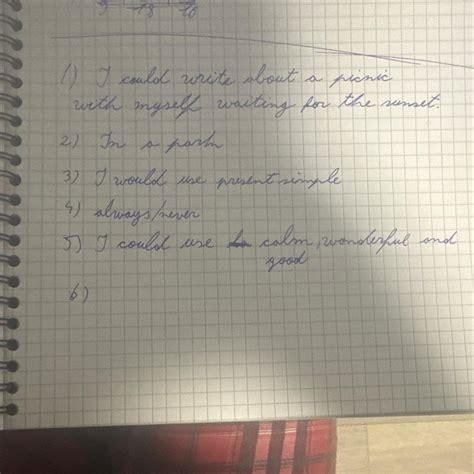 1) I could write about a picnic
with myself waiting for the sunset.
2) In a park
3) I would use present simple
4) always/never
5) I could use calm, wonderful and
good
6)